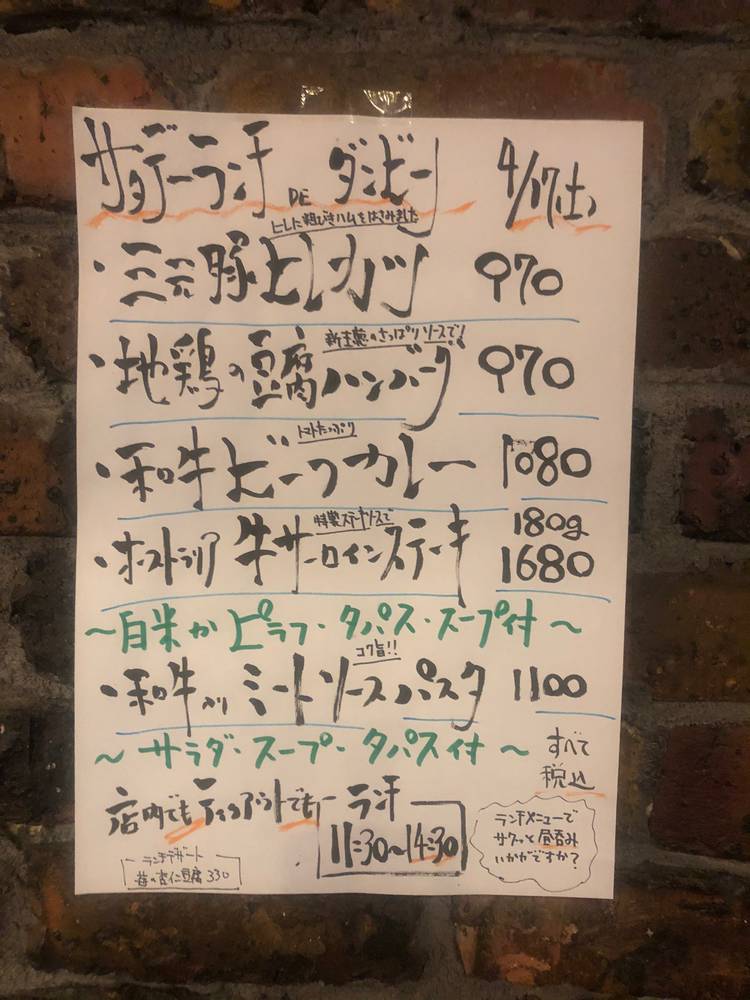 サタデーランチ DE ダンビーノ 4/17(土)
ヒレに粗びきハムをはさみました
・三元豚ヒレカツ 970
新生姜のさっぱりソースで!
・地鶏の豆腐ハンバーグ 970
トマトたっぷり
・和牛ビーフカレー 1080
特製ステーキソースで
・オーストラリア 牛サーロインステーキ 180g 1680
〜白米かピラフ・タパス・スープ付〜
コク旨!!
・和牛入りミートソースパスタ 1100
〜サラダ・スープ・タパス付〜
すべて
税込
店内でもテイクアウトでも
ランチ
11:30〜14:30
ランチメニューで
サクッと昼呑み
いかがですか?
ランチデザート
杏仁豆腐 330